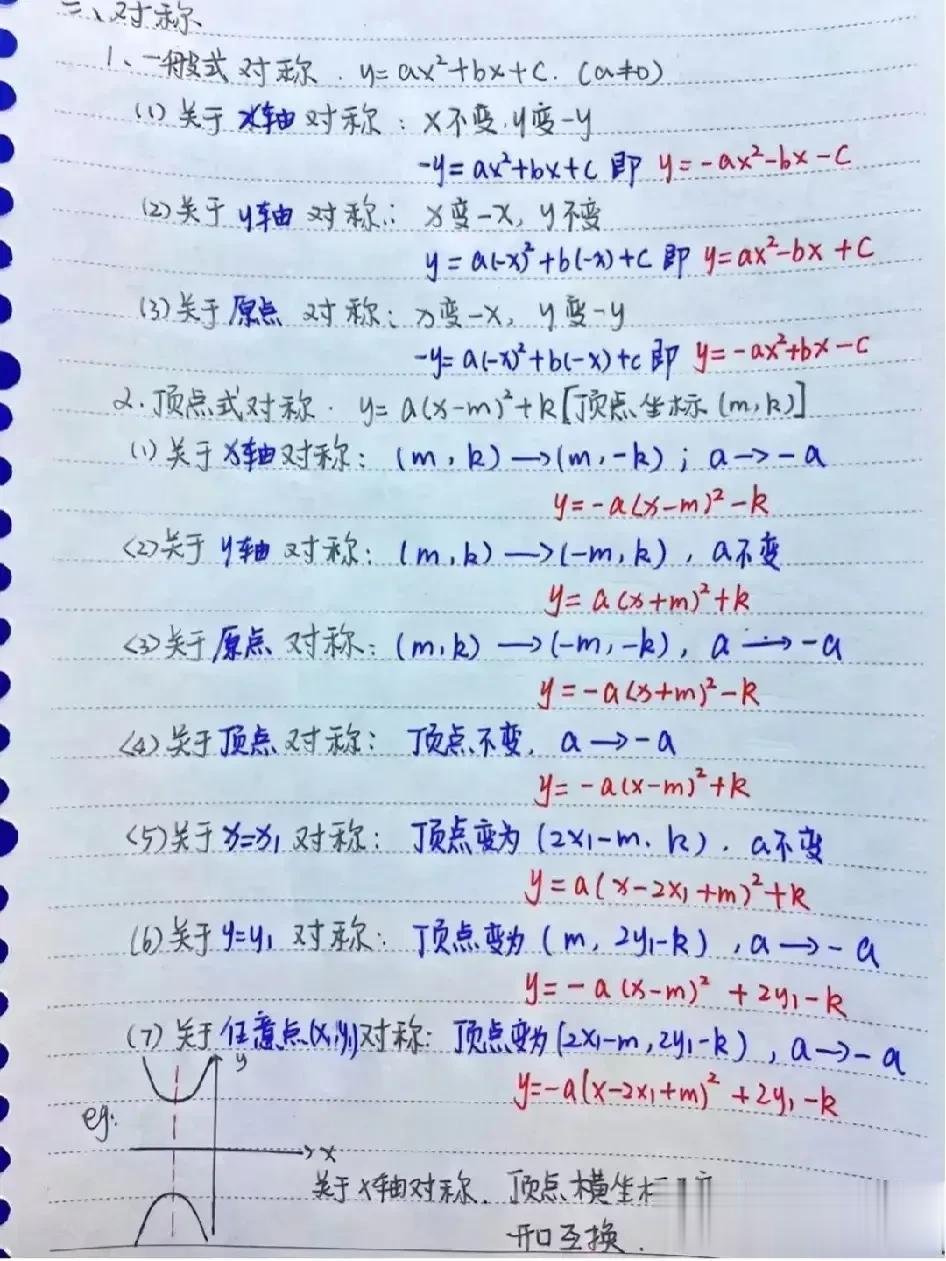 二、对称
1、一般式对称. y=ax²+bx+c. (a≠0)
(1)关于x轴对称: x不变,y变-y
-y=ax²+bx+c 即 y=-ax²-bx-c
(2)关于y轴对称: x变-x, y不变
y=a(-x)²+b(-x)+c 即 y=ax²-bx+c
(3)关于原点对称: x变-x, y变-y
-y=a(-x)²+b(-x)+c 即 y=-ax²+bx-c
2.顶点式对称. y=a(x-m)²+k[顶点坐标(m,k)]
(1)关于x轴对称: (m,k)→(m,-k); a→-a
y=-a(x-m)²-k
(2)关于y轴对称: (m,k)→(-m,k), a不变
y=a(x+m)²+k
(3)关于原点对称: (m,k)→(-m,-k), a→-a
y=-a(x+m)²-k
(4)关于顶点对称: 顶点不变, a→-a
y=-a(x-m)²+k
(5)关于x=x₁对称: 顶点变为(2x₁-m,k). a不变
y=a(x-2x₁+m)²+k
(6)关于y=y₁对称: 顶点变为(m,2y₁-k), a→-a
y=-a(x-m)²+2y₁-k
(7)关于任意点(x₁,y₁)对称: 顶点变为(2x₁-m,2y₁-k), a→-a
y=-a(x-2x₁+m)²+2y₁-k
y
eg:
x
关于x轴对称. 顶点横坐
开口互换.